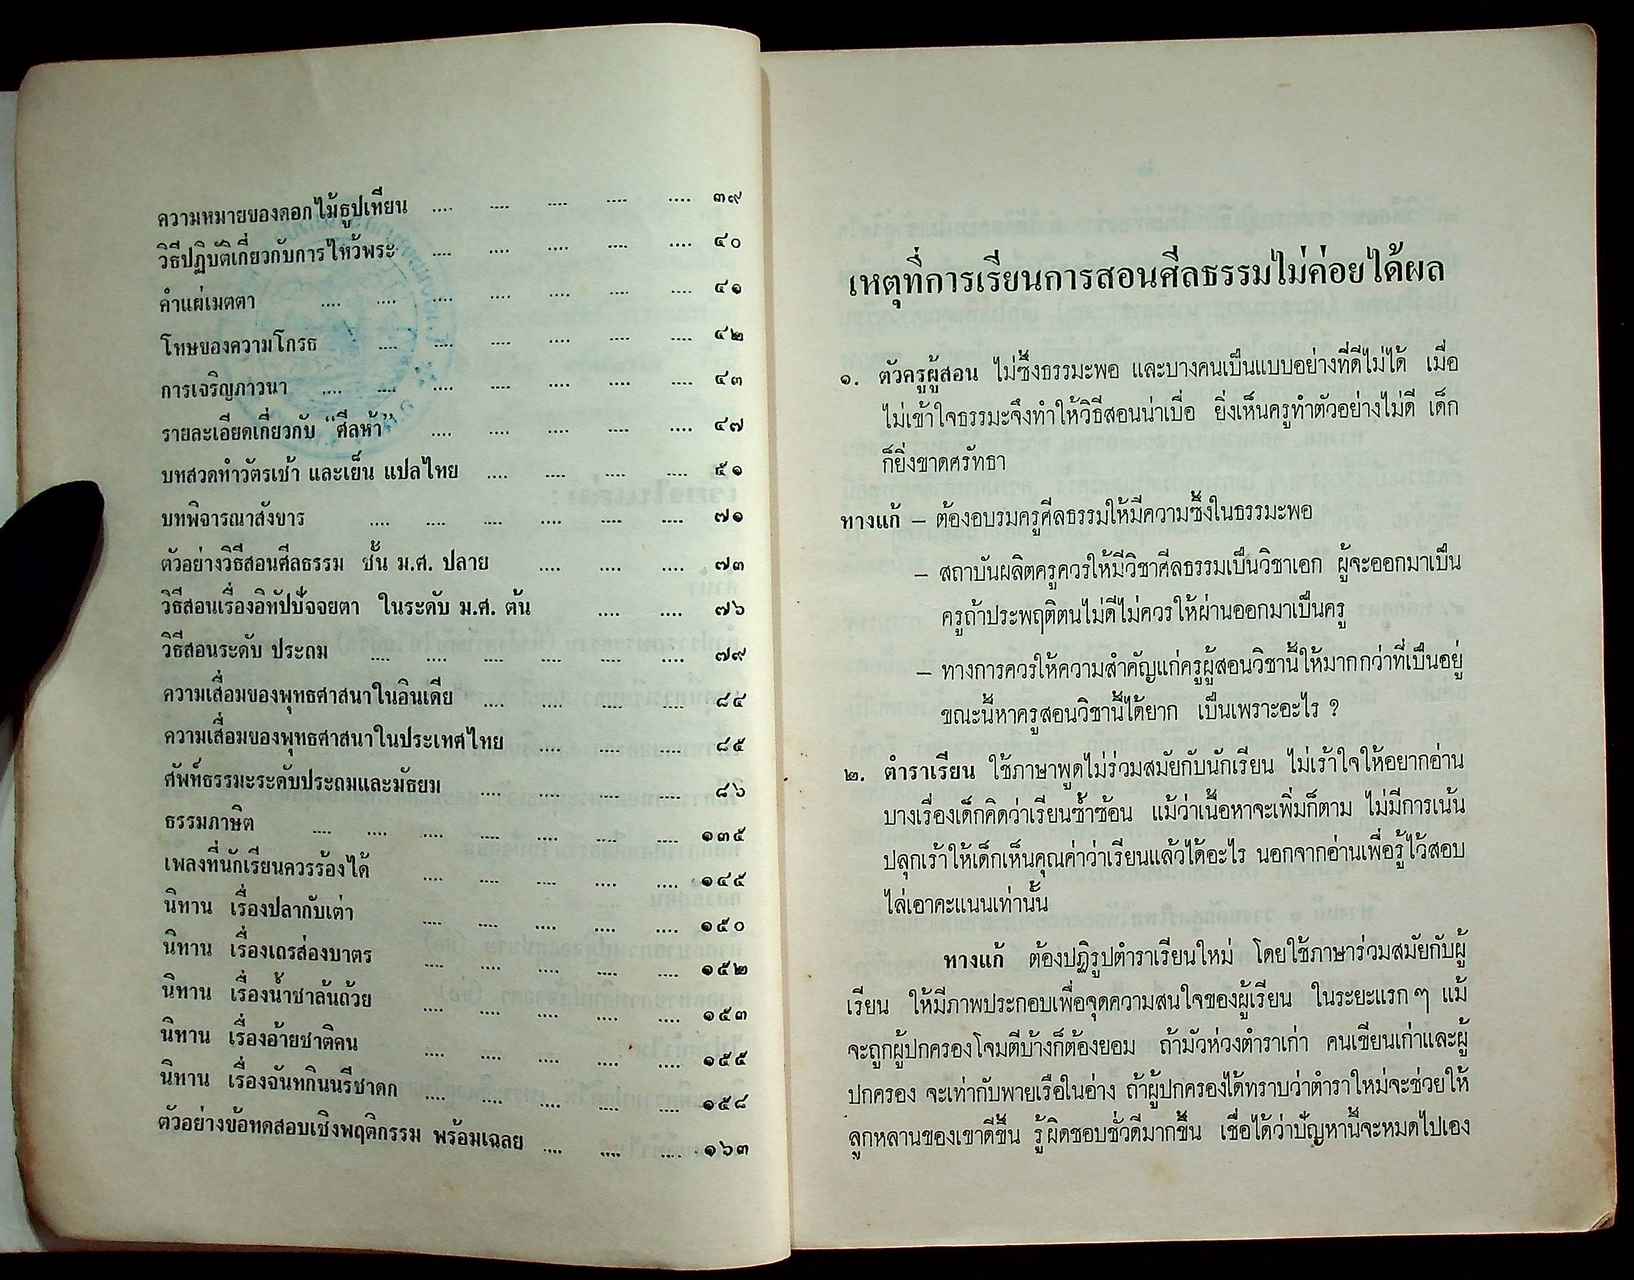 ความหมายของดอกไม้ธูปเทียน .... .... .... .... .... ๓๙
วิธีปฏิบัติเกี่ยวกับการไหว้พระ .... .... .... .... .... ๔๐
คำแผ่เมตตา .... .... .... .... .... .... .... ๔๑
โทษของความโกรธ .... .... .... .... .... .... ๔๒
การเจริญภาวนา .... .... .... .... .... .... .... ๔๓
รายละเอียดเกี่ยวกับ “ศีลห้า” .... .... .... .... .... ๔๗
บทสวดทำวัตรเช้า และเย็น แปลไทย .... .... .... .... ๕๑
บทพิจารณาสังขาร .... .... .... .... .... .... ๗๑
ตัวอย่างวิธีสอนศีลธรรม ชั้น ม.ศ. ปลาย .... .... .... ๗๓
วิธีสอนเรื่องอิทัปปัจจยตา ในระดับ ม.ศ. ต้น .... .... ๗๖
วิธีสอนระดับ ประถม .... .... .... .... .... .... ๗๙
ความเสื่อมของพุทธศาสนาในอินเดีย .... .... .... .... ๘๔
ความเสื่อมของพุทธศาสนาในประเทศไทย .... .... .... ๘๕
ศัพท์ธรรมะระดับประถมและมัธยม .... .... .... .... ๘๖
ธรรมภาษิต .... .... .... .... .... .... .... ๑๓๕
เพลงที่นักเรียนควรร้องได้ .... .... .... .... .... ๑๔๕
นิทาน เรื่องปลากับเต่า .... .... .... .... .... ๑๕๐
นิทาน เรื่องเถรส่องบาตร .... .... .... .... .... ๑๕๒
นิทาน เรื่องน้ำชาล้นถ้วย .... .... .... .... .... ๑๕๓
นิทาน เรื่องอ้ายชาติคน .... .... .... .... .... ๑๕๕
นิทาน เรื่องจันทกินนรีชาดก .... .... .... .... .... ๑๕๘
ตัวอย่างข้อทดสอบเชิงพฤติกรรม พร้อมเฉลย .... .... .... ๑๖๓
เหตุที่การเรียนการสอนศีลธรรมไม่ค่อยได้ผล
๑. ตัวครูผู้สอน ไม่ซึ้งธรรมะพอ และบางคนเป็นแบบอย่างที่ดีไม่ได้ เมื่อ
ไม่เข้าใจธรรมะจึงทำให้วิธีสอนน่าเบื่อ ยิ่งเห็นครูทำตัวอย่างไม่ดี เด็ก
ก็ยิ่งขาดศรัทธา
ทางแก้ – ต้องอบรมครูศีลธรรมให้มีความซึ้งในธรรมะพอ
– สถาบันผลิตครูควรให้มีวิชาศีลธรรมเป็นวิชาเอก ผู้จะออกมาเป็น
ครูถ้าประพฤติตนไม่ดีไม่ควรให้ผ่านออกมาเป็นครู
– ทางการควรให้ความสำคัญแก่ครูผู้สอนวิชานี้ให้มากกว่าที่เป็นอยู่
ขณะนี้หาครูสอนวิชานี้ได้ยาก เป็นเพราะอะไร ?
๒. ตำราเรียน ใช้ภาษาพูดไม่ร่วมสมัยกับนักเรียน ไม่เร้าใจให้อยากอ่าน
บางเรื่องเด็กคิดว่าเรียนซ้ำซ้อน แม้ว่าเนื้อหาจะเพิ่มก็ตาม ไม่มีการเน้น
ปลุกเร้าให้เด็กเห็นคุณค่าว่าเรียนแล้วได้อะไร นอกจากอ่านเพื่อรู้ไว้สอบ
ไล่เอาคะแนนเท่านั้น
ทางแก้ ต้องปฏิรูปตำราเรียนใหม่ โดยใช้ภาษาร่วมสมัยกับผู้
เรียน ให้มีภาพประกอบเพื่อจุดความสนใจของผู้เรียน ในระยะแรก ๆ แม้
จะถูกผู้ปกครองโจมตีบ้างก็ต้องยอม ถ้ามัวห่วงตำราเก่า คนเขียนเก่าและผู้
ปกครอง จะเท่ากับพายเรือในอ่าง ถ้าผู้ปกครองได้ทราบว่าตำราใหม่จะช่วยให้
ลูกหลานของเขาดีขึ้น รู้ผิดชอบชั่วดีมากขึ้น เชื่อได้ว่าปัญหานี้จะหมดไปเอง